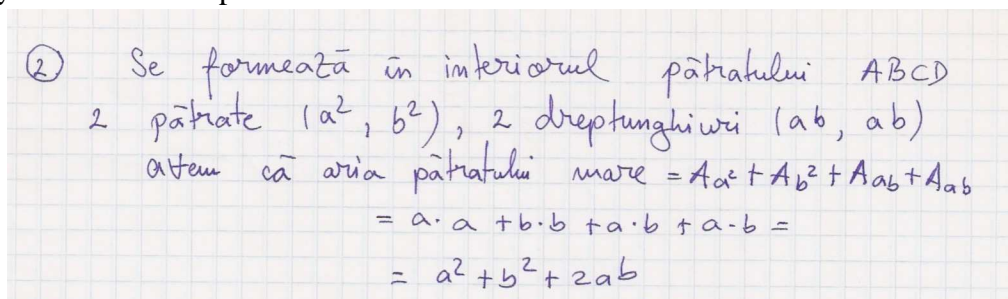 ② Se formează în interiorul pătratului ABCD
2 pătrate (a², b²), 2 dreptunghiuri (ab, ab)
avem că aria pătratului mare = A_a² + A_b² + A_ab + A_ab
= a·a + b·b + a·b + a·b =
= a² + b² + 2ab